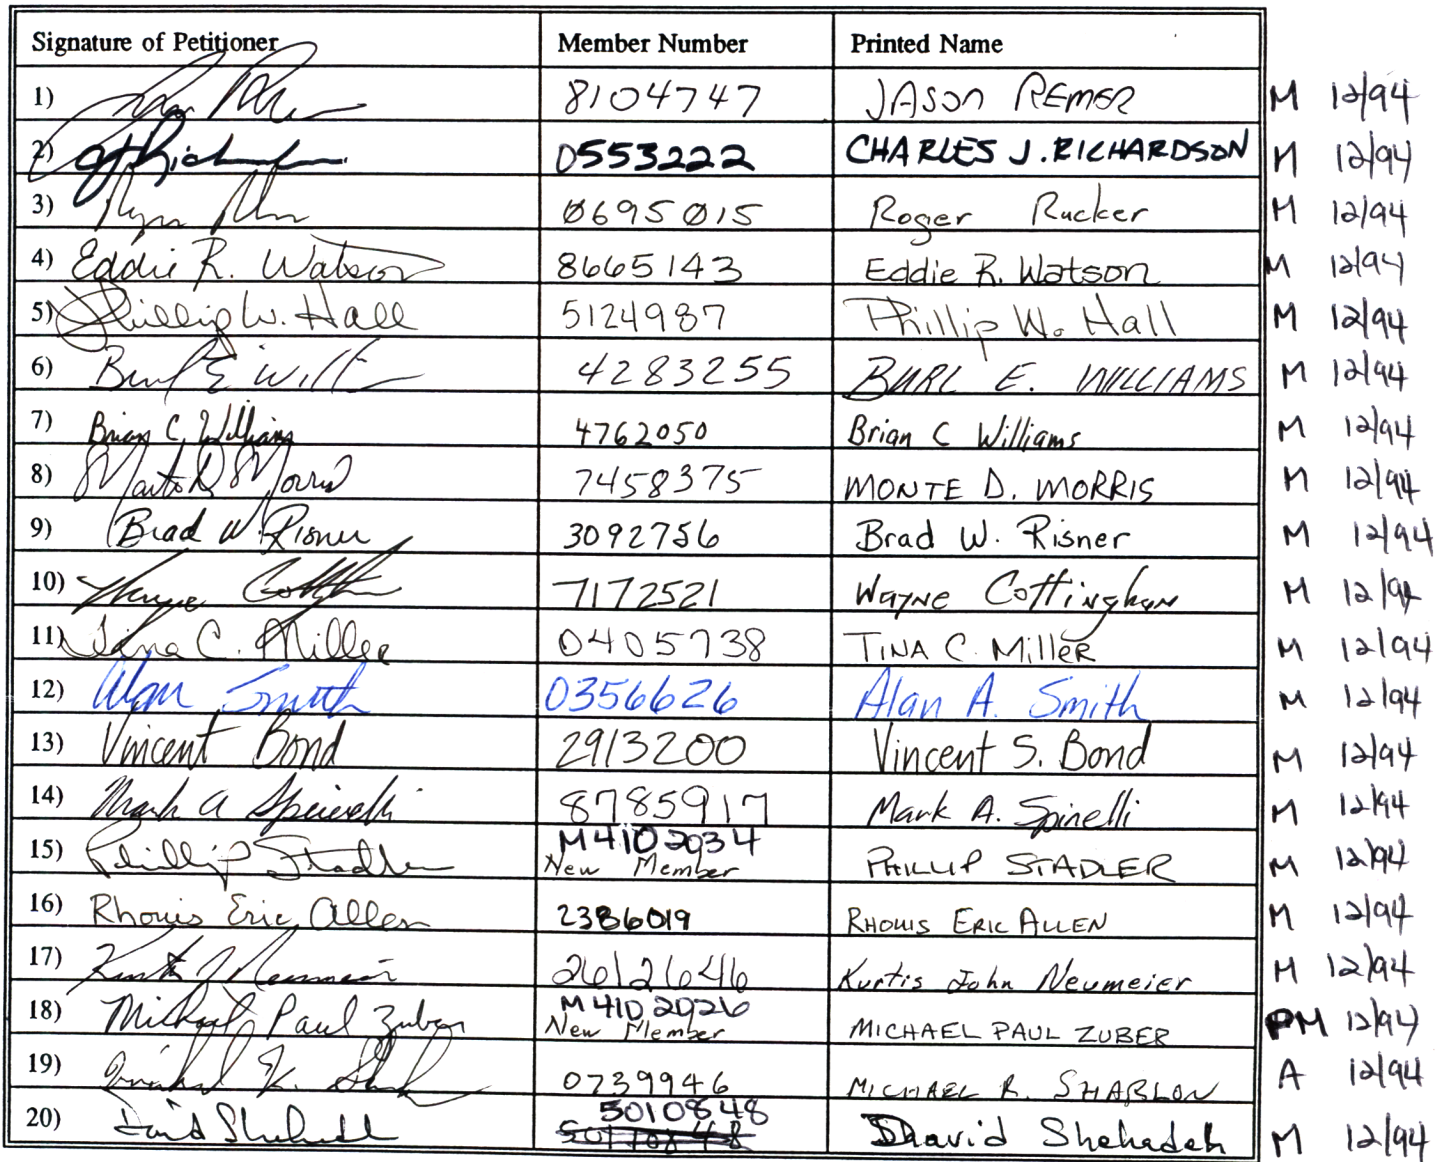 Signature of Petitioner Member Number Printed Name
1) 8104747 JASON REMER M 12/94
2) 0553222 CHARLES J. RICHARDSON M 12/94
3) 0695015 Roger Rucker M 12/94
4) Eddie R. Watson 8665143 Eddie R. Watson M 12/94
5) Phillip W. Hall 5124987 Phillip W. Hall M 12/94
6) Burl E Will 4283255 BURL E. WILLIAMS M 12/94
7) Brian C Williams 4762050 Brian C Williams M 12/94
8) Monte D Morris 7458375 MONTE D. MORRIS M 12/94
9) Brad W. Risner 3092756 Brad W. Risner M 12/94
10) Wayne 7172521 Wayne Cottingham M 12/94
11) Tina C. Miller 0405738 TINA C. Miller M 12/94
12) Alan Smith 0356626 Alan A. Smith M 12/94
13) Vincent Bond 2913200 Vincent S. Bond M 12/94
14) Mark A Spinelli 8785917 Mark A. Spinelli M 12/94
M4102034
15) Phillip Stadler New Member PHILLIP STADLER M 12/94
16) Rhouis Eric Allen 2386019 RHOUIS ERIC ALLEN M 12/94
17) Kurtis J Neumeier 2612646 Kurtis John Neumeier M 12/94
M4102026
18) Michael Paul Zuber New Member MICHAEL PAUL ZUBER PM 12/94
19) 0739946 MICHAEL R. A 12/94
5010848
20) David Shehadeh David Shehadeh M 12/94